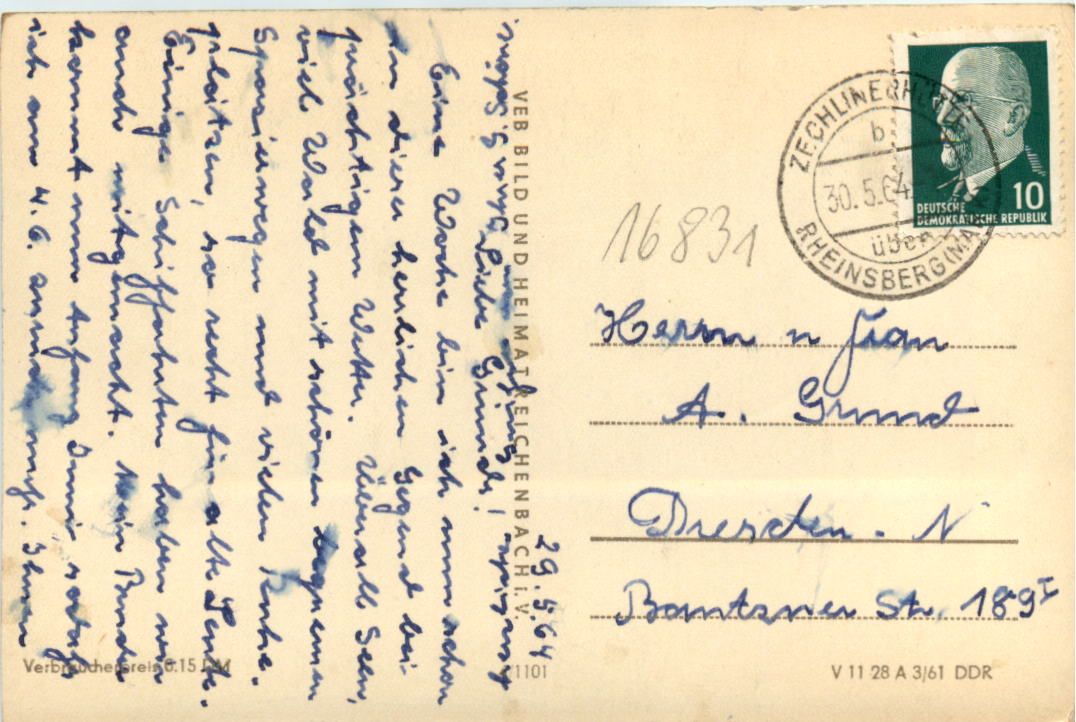 29.5.64
Liebe Grunds!
Eine Woche bin ich nun schon
in dieser herrlichen Gegend bei
prächtigem Wetter. Überall Seen,
viel Wald mit schönen bequemen
Spazierwegen und vielen Ruhe-
plätzen, so recht für alte Leute.
Einige Schiffahrten haben wir
auch mitgemacht. Mein Bruder
kommt nun Anfang Juni, sodaß
ich am 4.6. zurück muß. Ihnen
VEB BILD UND HEIMAT REICHENBACH I. V.
Verbraucherpreis 0.15 DM
1101
ZECHLINERHÜTTE
b
30.5.64
über
RHEINSBERG (MARK)
10
DEUTSCHE
DEMOKRATISCHE REPUBLIK
16831
Herrn u Frau
A. Grund
Dresden - N
Bautzner Str. 189 I
V 11 28 A 3/61 DDR